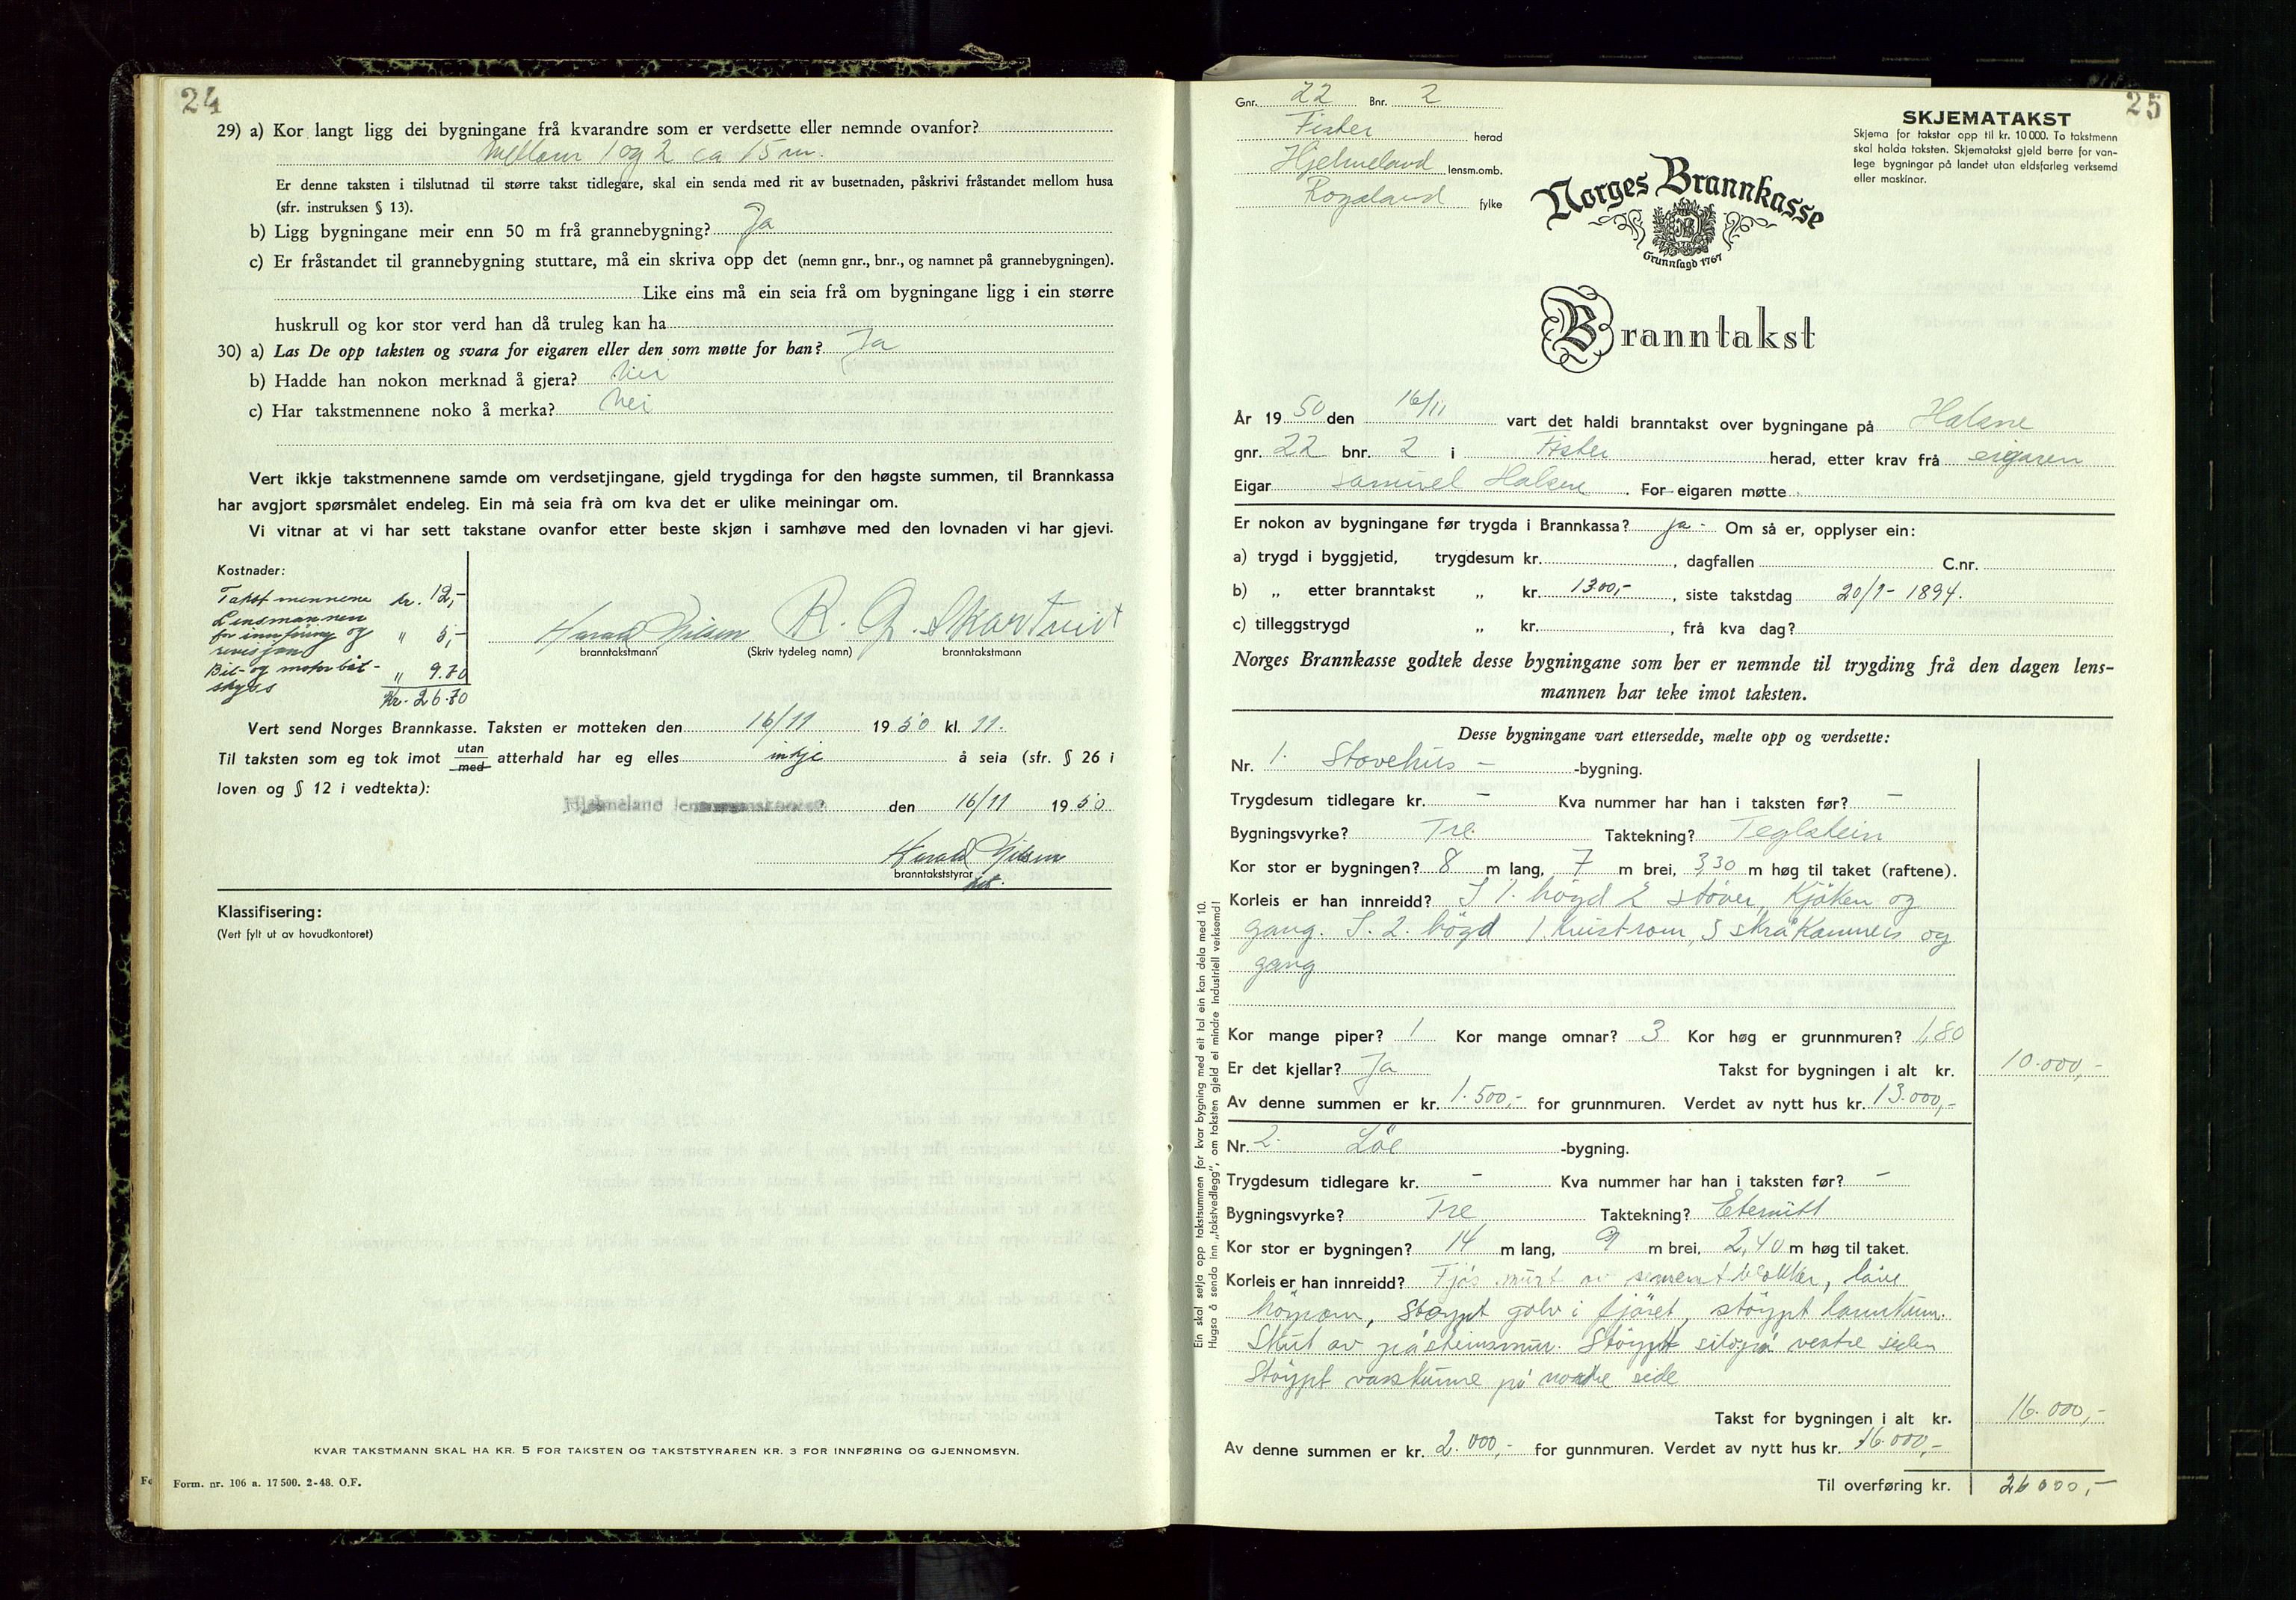 24
29) a) Kor langt ligg dei bygningane frå kvarandre som er verdsette eller nemnde ovanfor?
Mellom 1 og 2 ca 15 m.
Er denne taksten i tilslutnad til større takst tidlegare, skal ein senda med rit av busetnaden, påskrivi fråstandet mellom husa
(sfr. instruksen § 13).
b) Ligg bygningane meir enn 50 m frå grannebygning? Ja
c) Er fråstandet til grannebygning stuttare, må ein skriva opp det (nemn gnr., bnr., og namnet på grannebygningen).
Like eins må ein seia frå om bygningane ligg i ein større
huskrull og kor stor verd han då truleg kan ha
30) a) Las De opp taksten og svara for eigaren eller den som møtte for han? Ja
b) Hadde han nokon merknad å gjera? Nei
c) Har takstmennene noko å merka? Nei
Vert ikkje takstmennene samde om verdsetjingane, gjeld trygdinga for den høgste summen, til Brannkassa
har avgjort spørsmålet endeleg. Ein må seia frà om kva det er ulike meiningar om.
Vi vitnar at vi har sett takstane ovanfor etter beste skjøn i samhøve med den lovnaden vi har gjevi.
Kostnader:
Takstmennene kr. 12,-
Lensmannen
for innføring og " 5,-
revisjon
Bil- og motorbåt-
skyss " 9.70
Kr. 26.70
Harald Nilsen R. G. Skartveit
branntakstmann (Skriv tydeleg namn) branntakstmann
Vert send Norges Brannkasse. Taksten er motteken den 16/11 1950 kl. 11.
Til taksten som eg tok imot utan/med atterhald har eg elles intje å seia (sfr. § 26 i
loven og § 12 i vedtekta):
Hjelmeland den 16/11 1950
Harald Nilsen
branntakststyrar
Klassifisering:
(Vert fylt ut av hovudkontoret)
KVAR TAKSTMANN SKAL HA KR. 5 FOR TAKSTEN OG TAKSTSTYRAREN KR. 3 FOR INNFØRING OG GJENNOMSYN.
Form. nr. 106 a. 17500. 2-48. O.F.
25
Gnr. 22 Bnr. 2
Fister herad
Hjelmeland lensm.omb.
Rogaland fylke
SKJEMATAKST
Skjema for takstar opp til kr. 10 000. To takstmenn
skal halda taksten. Skjematakst gjeld berre for van-
lege bygningar på landet utan eldsfarleg verksemd
eller maskinar.
Norges Brannkasse
Grunnlagd 1767
Branntakst
År 1950 den 16/11 vart det haldi branntakst over bygningane på Halsne
gnr. 22 bnr. 2 i Fister herad, etter krav frå eigaren
Eigar Samuel Halsne. For eigaren møtte
Er nokon av bygningane før trygda i Brannkassa? Ja - Om så er, opplyser ein:
a) trygd i byggjetid, trygdesum kr. , dagfallen C.nr.
b) „ etter branntakst „ kr. 1300,- , siste takstdag 20/9-1894.
c) tilleggstrygd „ kr. , frå kva dag?
Norges Brannkasse godtek desse bygningane som her er nemnde til trygding frå den dagen lens-
mannen har teke imot taksten.
Desse bygningane vart ettersedde, mælte opp og verdsette:
Nr. 1. Stovehus - -bygning.
Trygdesum tidlegare kr. - Kva nummer har han i taksten før? -
Bygningsvyrke? Tre. Taktekning? Teglstein
Kor stor er bygningen? 8 m lang, 7 m brei, 3,30 m høg til taket (raftene).
Korleis er han innreidd? I 1. högd 2 stover, Kjöken og
gang. I. 2. högd 1 kvistrom, 3 skråkammers og
gang
Kor mange piper? 1 Kor mange omnar? 3 Kor høg er grunnmuren? 1,80
Er det kjellar? Ja Takst for bygningen i alt kr. 10.000,-
Av denne summen er kr. 1.500,- for grunnmuren. Verdet av nytt hus kr. 13.000,-
Nr. 2. Löe -bygning.
Trygdesum tidlegare kr. - Kva nummer har han i taksten før? -
Bygningsvyrke? Tre Taktekning? Eternitt
Kor stor er bygningen? 14 m lang, 9 m brei, 2,40 m høg til taket.
Korleis er han innreidd? Fjös murt av sementblokker, låve
höyrom, Støypt golv i fjöset, stöypt landkum.
Skut av gråsteinsmur. Stöypt silo på vestre siden
Stöypt vasskumme på nordre side
Takst for bygningen i alt kr. 16.000,-
Av denne summen er kr. 2.000,- for gunnmuren. Verdet av nytt hus kr. 16.000,-
Til overføring kr. 26000,-
Ein skal setja opp takstsummen for kvar bygning med eit tal ein kan dela med 10.
Hugsa å senda inn „takstvedlegg", om taksten gjeld ei mindre industriell verksemd!